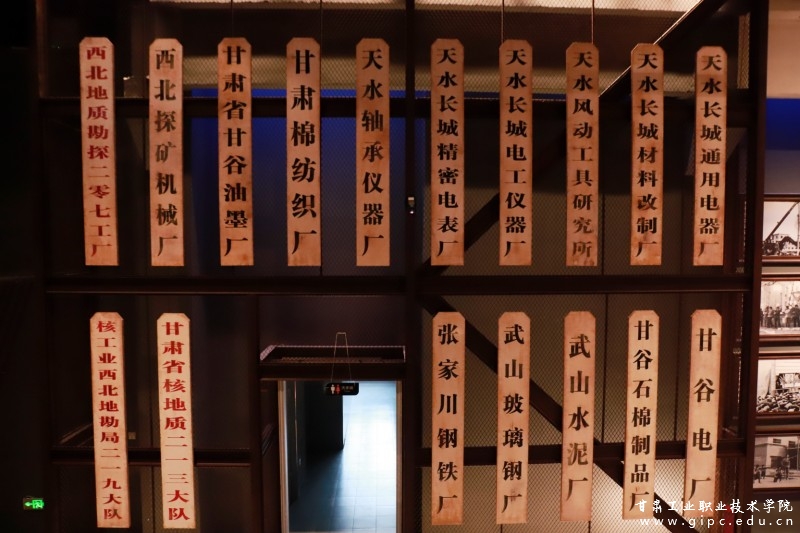 西北地质勘探二零七工厂
西北探矿机械厂
甘肃省甘谷油墨厂
甘肃棉纺织厂
天水轴承仪器厂
天水长城精密电表厂
天水长城电工仪器厂
天水风动工具研究所
天水长城材料改制厂
天水长城通用电器厂
核工业西北地勘局二一九大队
甘肃省核地质二一三大队
张家川钢铁厂
武山玻璃钢厂
武山水泥厂
甘谷石棉制品厂
甘谷电厂
甘肃工业职业技术学院
www.gipc.edu.cn